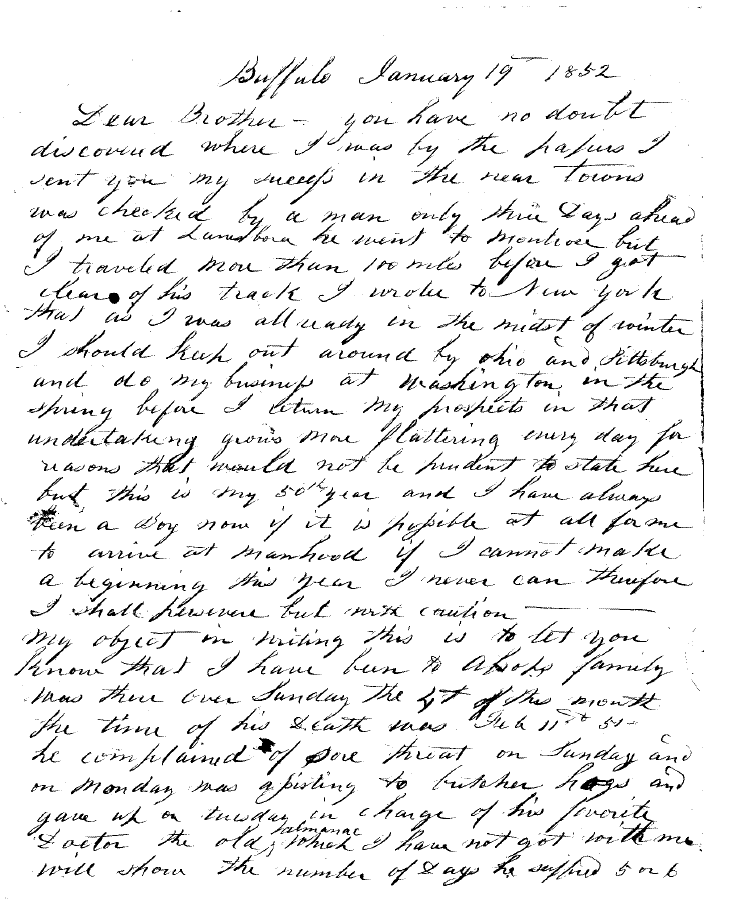 Buffalo January 19th 1852
Dear Brother - you have no doubt
discovered where I was by the papers I
sent you my success in the near towns
was checked by a man only three Days ahead
of me at Lanesboro he went to Montrose but
I traveled more than 100 miles before I got
clear of his track I wrote to New York
that as I was allready in the midst of winter
I should keep out around by ohio and Pittsburgh
and do my business at Washington in the
spring before I return my prospects in that
undertaking grows more flattering every day for
reasons that would not be prudent to state here
but this is my 50th year and I have always
been a Boy now if it is possible at all for me
to arrive at manhood if I cannot make
a beginning this year I never can therefore
I shall persevere but with caution
My object in writing this is to let you
know that I have been to family
was there over Sunday the 4th of this month
the time of his Death was Feb 11th 51-
he complained of sore throat on Sunday and
on Monday was assisting to butcher hogs and
gave up on tuesday in charge of his favorite
Doctor the old almanac which I have not got with me
will show the number of Days he suffred 5 or 6